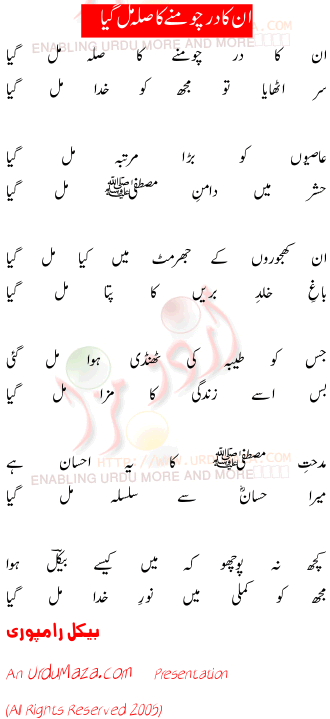 ان کا در چومنے کا صلہ مل گیا
ان کا در چومنے کا صلہ مل گیا
سر اٹھایا تو مجھ کو خدا مل گیا
عاصیوں کو بڑا مرتبہ مل گیا
حشر میں دامنِ مصطفیٰ ﷺ مل گیا
ان کھجوروں کے جھرمٹ میں کیا مل گیا
باغِ خلدِ بریں کا پتا مل گیا
جس کو طیبہ کی ٹھنڈی ہوا مل گئی
بس اسے زندگی کا مزا مل گیا
مدحتِ مصطفیٰ ﷺ کا یہ احسان ہے
میرا حسانؓ سے سلسلہ مل گیا
کچھ نہ پوچھو کہ میں کیسے بیکلؔ ہوا
مجھ کو کملی میں نورِ خدا مل گیا
بیکل رامپوری
An UrduMaza.com Presentation
(All Rights Reserved 2005)
اردو مزا
HTTP://WWW.URDU
ENABLING URDU MORE AND MORE